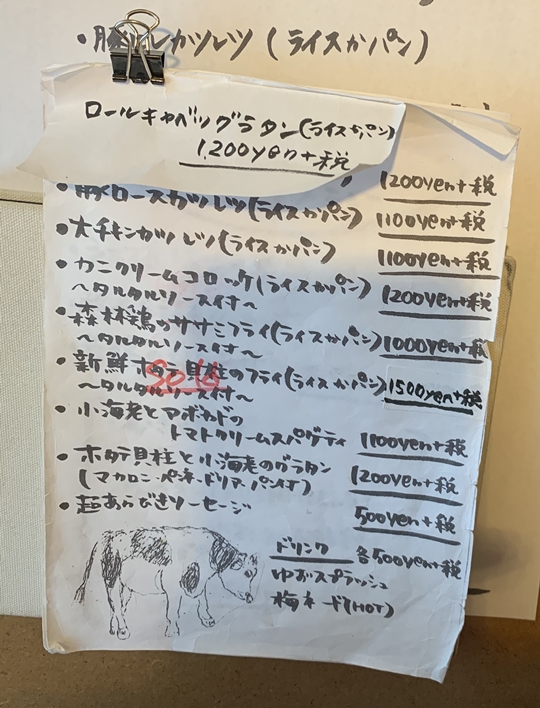 ・豚ヒレカツレツ (ライスかパン)
ロールキャベツグラタン(ライスかパン)
1,200yen+税
1200yen+税
・豚ロースカツレツ(ライスかパン) 1100yen+税
・大チキンカツレツ(ライスかパン) 1100yen+税
・カニクリームコロッケ(ライスかパン) 1200yen+税
〜タルタルソース付〜
・森林鶏のササミフライ(ライスかパン) 1000yen+税
〜タルタルソース付〜
・新鮮ホタテ貝柱のフライ(ライスかパン) 1500yen+税
〜タルタルソース付〜
・小海老とアボカドの
トマトクリームスパゲティ 1100yen+税
・ホタテ貝柱と小海老のグラタン 1200yen+税
(マカロニ・ペンネ・ドリア・パン付)
・超あらびきソーセージ 500yen+税
ドリンク 各500yen+税
ゆずスプラッシュ
梅ネード(HOT)